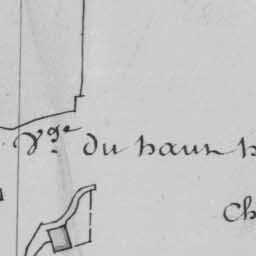 V.ge du haut h
Ch